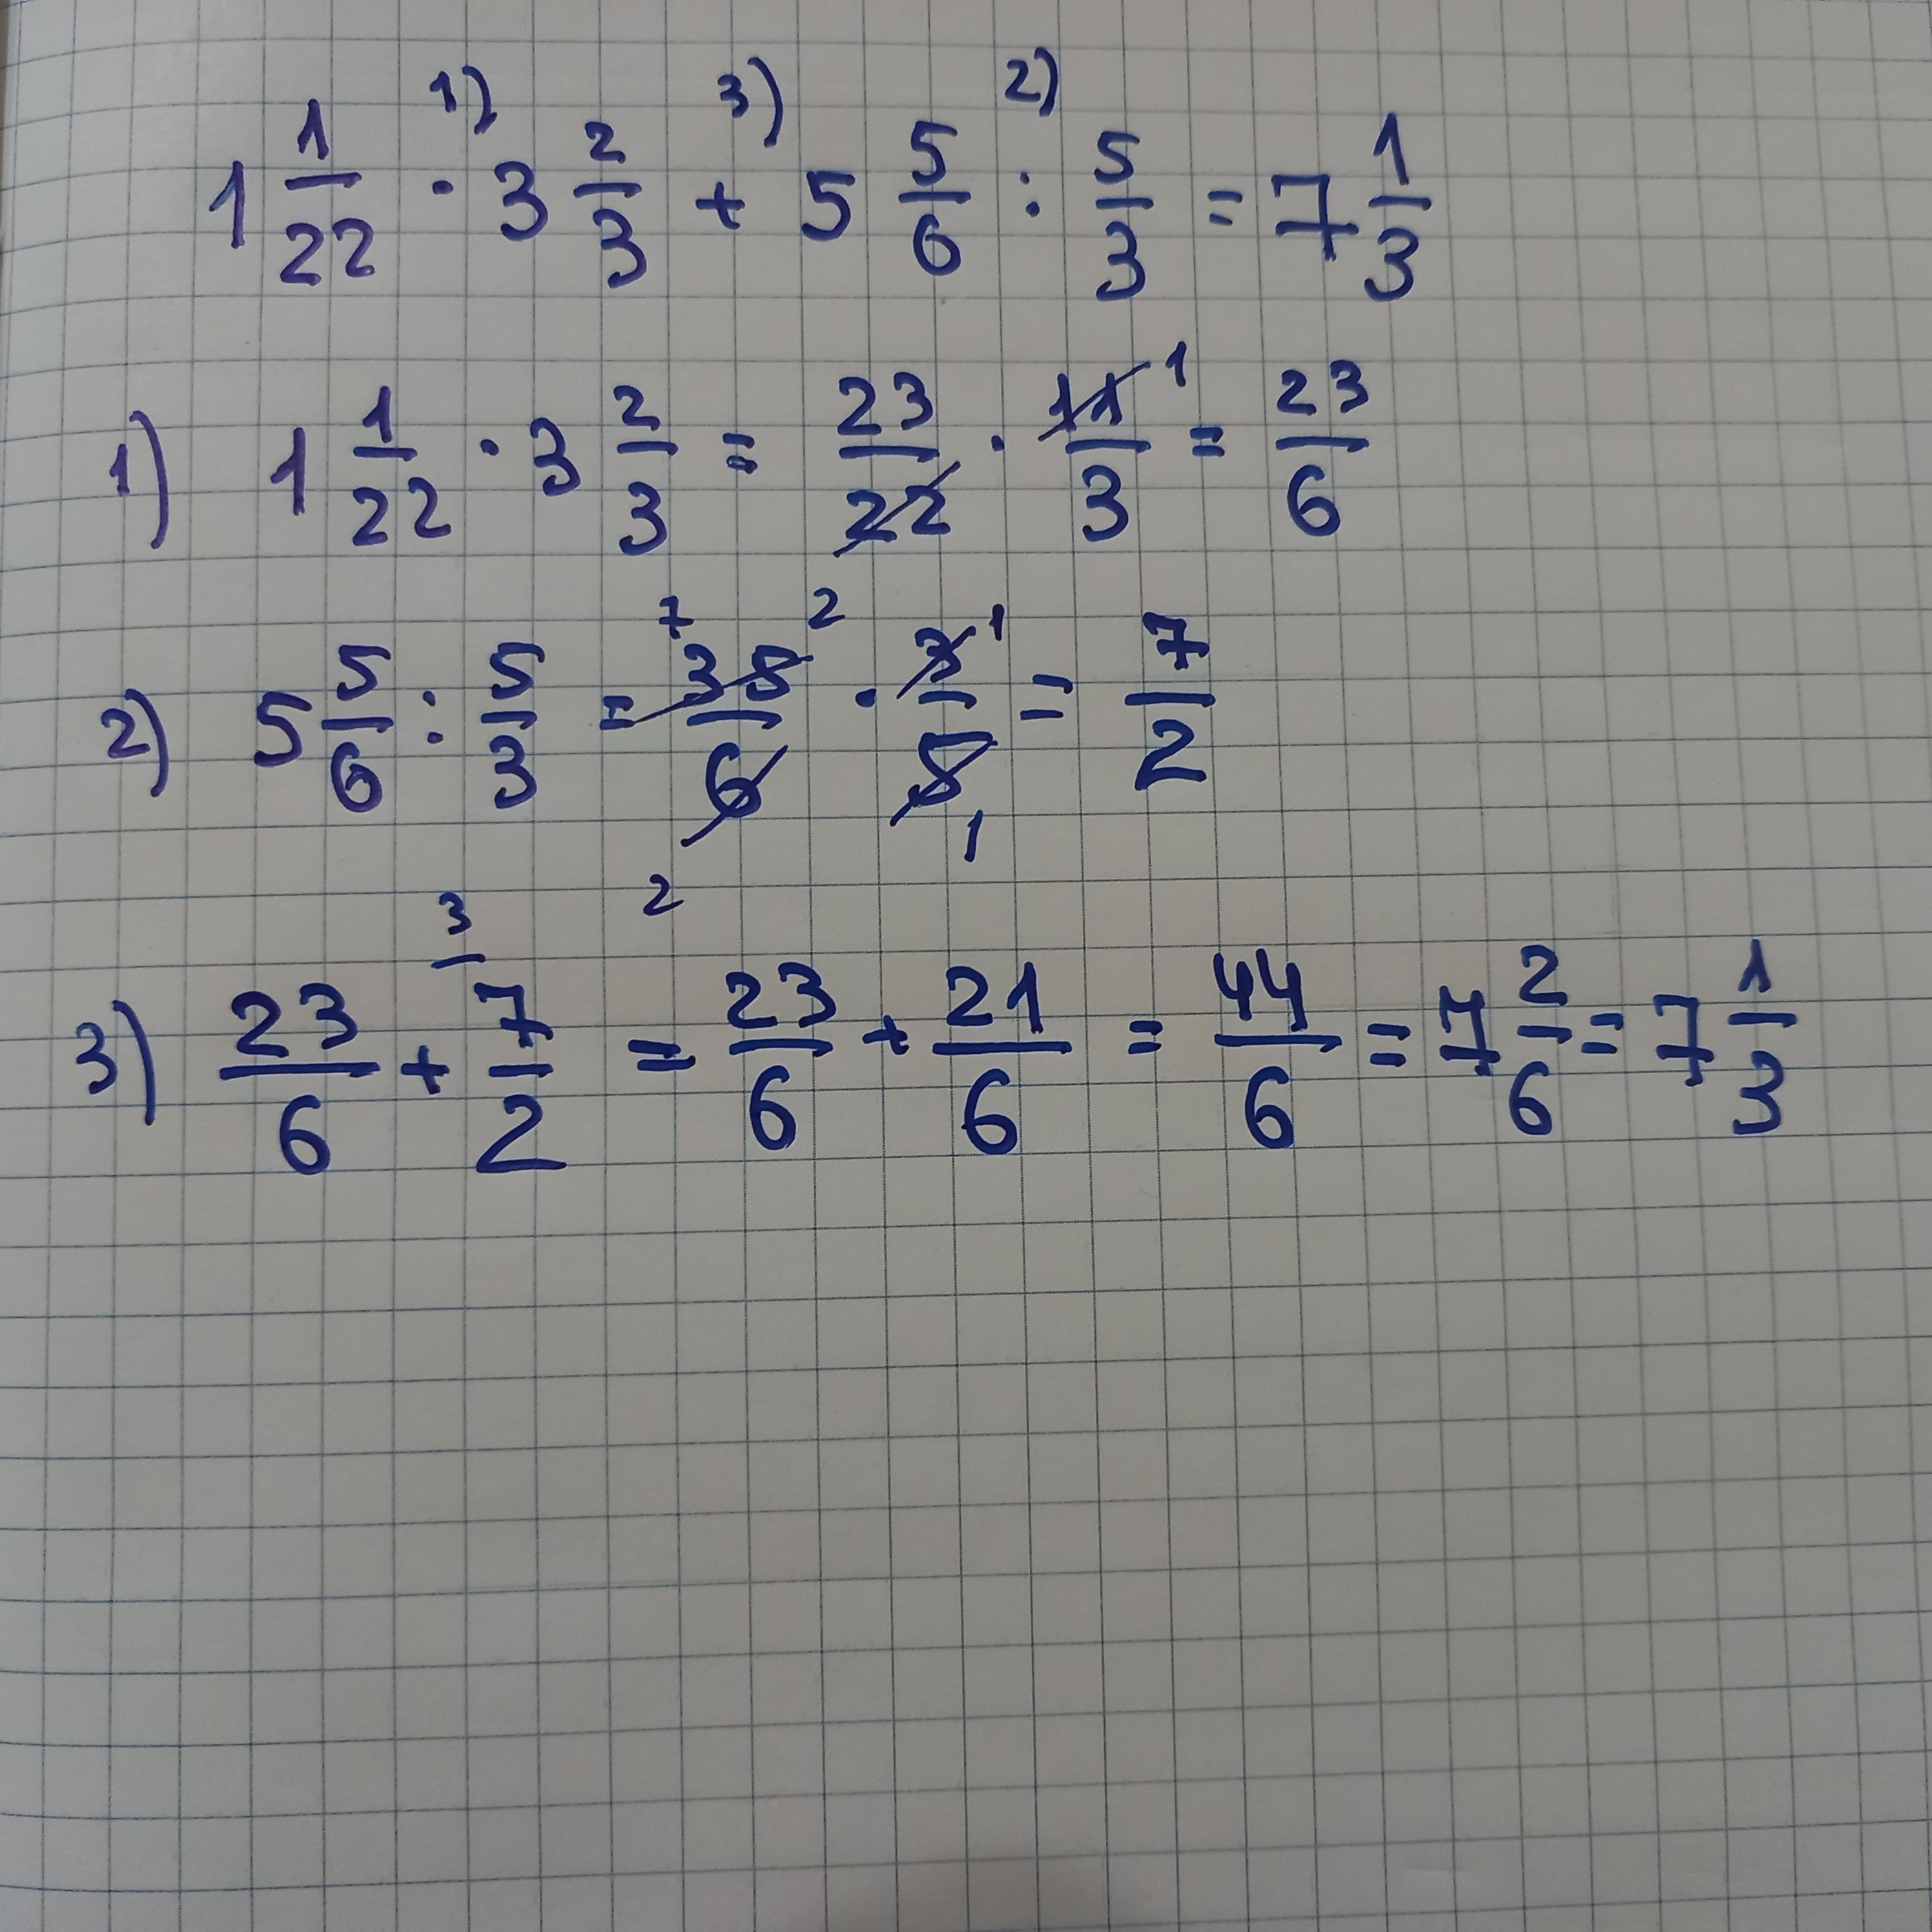 1) 3) 2)
1 1/22 · 3 2/3 + 5 5/6 : 5/3 = 7 1/3
1) 1 1/22 · 3 2/3 = 23/22 · 11/3 1 = 23/6
7 2 1
2) 5 5/6 : 5/3 = 35/6 · 3/5 = 7/2
2 1
3
3) 23/6 + 7/2 = 23/6 + 21/6 = 44/6 = 7 2/6 = 7 1/3